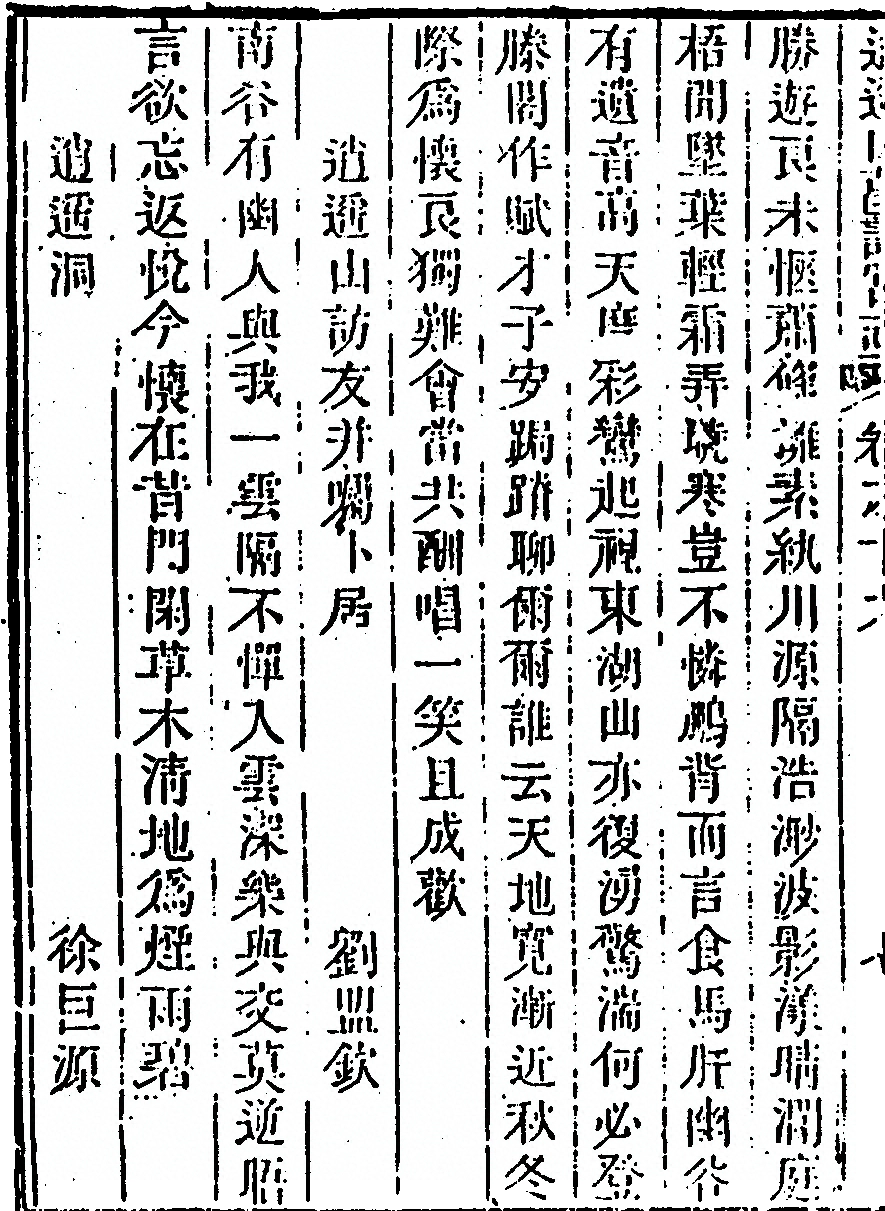 勝遊良未愜蕭條離素紈川源隔浩渺波影漾晴瀾庭
梧閒墜葉輕霜弄曉寒豈不憐鵬背而言食馬肝幽谷
有遺音高天彩鸞起視東湖山亦復湧驚湍何必登
滕閣作賦才子安跼蹐聊爾爾誰云天地寬漸近秋冬
際爲懷良獨難會當共酬唱一笑且成歡
逍遙山訪友并囑卜居 劉欽
南谷有幽人與我一雲隔不憚入雲深樂與交莫逆晤
言欲忘返悅今懷在昔門閑草木清地爲煙雨碧
逍遙洞 徐巨源